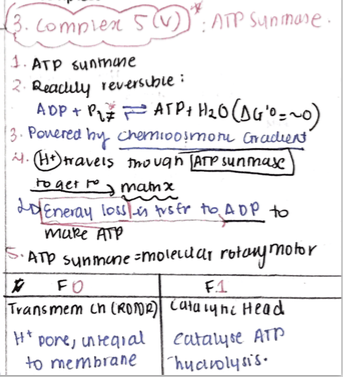 3. Complex 5 (V) : ATP sunmase.
1. ATP sunmase
2. Readily reversible:
ADP + Pi ⇌ ATP + H2O (ΔG'° = ~0)
3. Powered by chemiosmotic Gradient
4. (H+) travels through ATP sunmase
to get to matrix
Energy loss is trsfr to ADP to
make ATP
5. ATP sunmase = molecular rotary motor
F0 F1
Transmem Ch (ROTOR) Catalytic Head
H+ pore, integral catalyse ATP
to membrane hydrolysis.